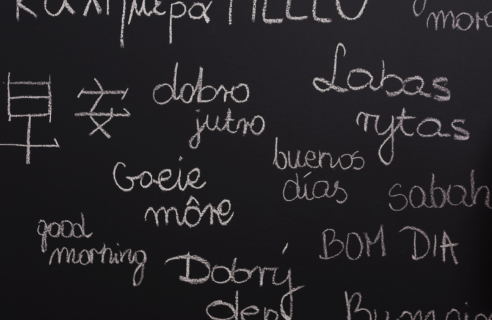 καλημέρα HELLO
早安
dobro
jutro
Labas
rytas
buenos
días
sabah
Goeie
môre
good
morning
BOM DIA
Dobrý